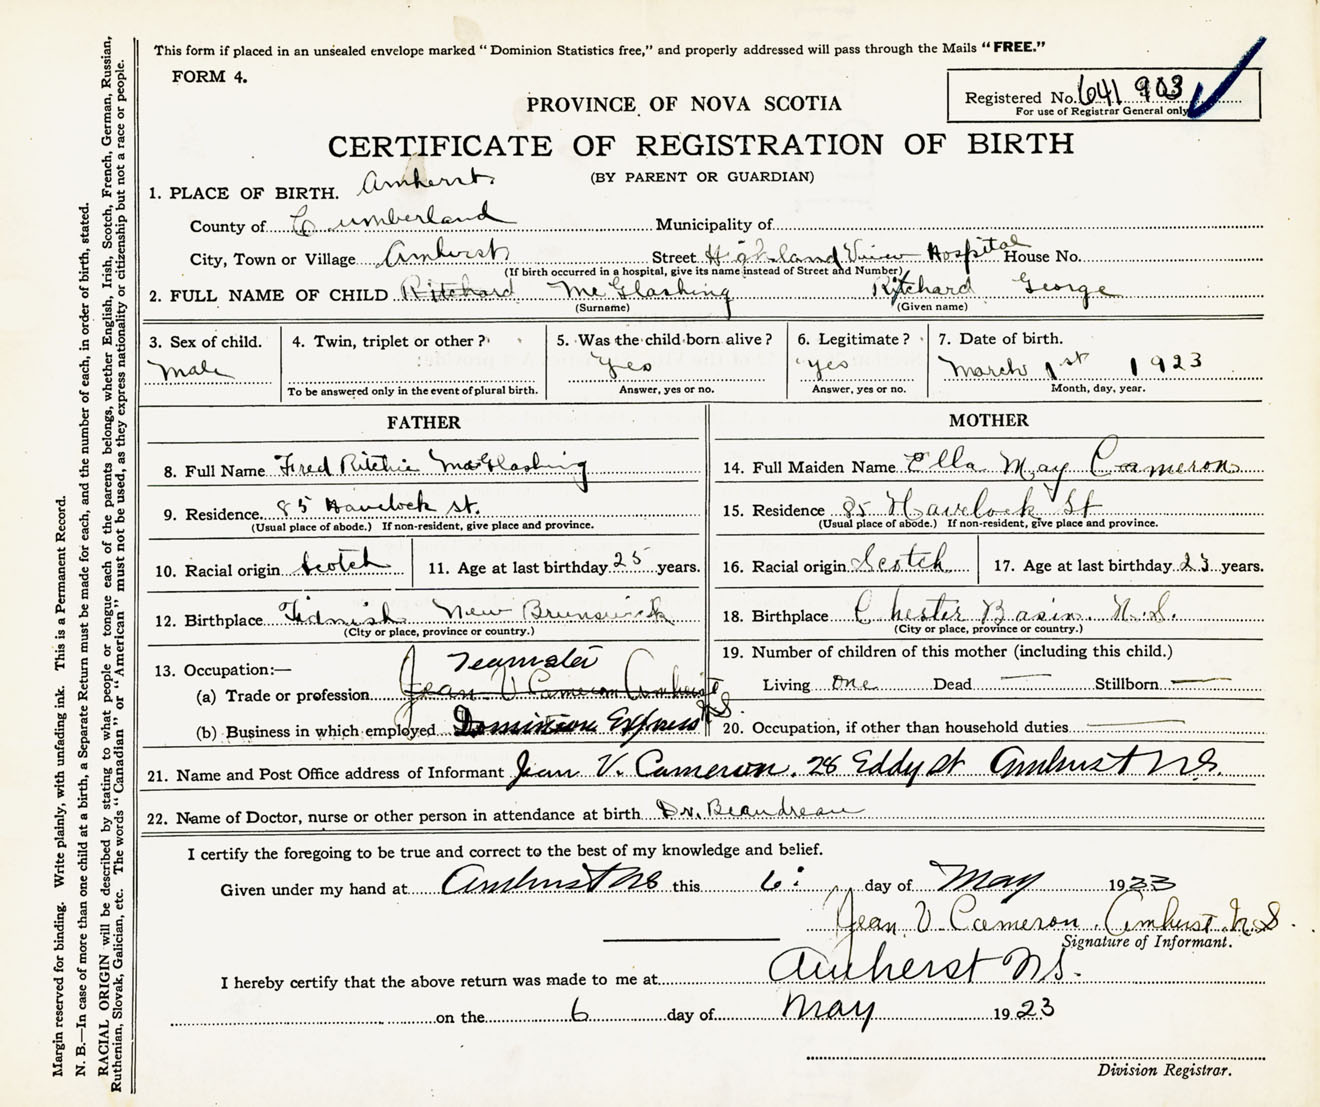 This form if placed in an unsealed envelope marked "Dominion Statistics free," and properly addressed will pass through the Mails "FREE."
FORM 4.
Registered No. 641 903
For use of Registrar General only
PROVINCE OF NOVA SCOTIA
CERTIFICATE OF REGISTRATION OF BIRTH
(BY PARENT OR GUARDIAN)
1. PLACE OF BIRTH. Amherst
County of Cumberland Municipality of
City, Town or Village Amherst Street Highland View Hospital House No.
(If birth occurred in a hospital, give its name instead of Street and Number)
2. FULL NAME OF CHILD Ritchard McGlashing Ritchard George
(Surname) (Given name)
3. Sex of child. 4. Twin, triplet or other? 5. Was the child born alive? 6. Legitimate? 7. Date of birth.
Male yes yes March 1st 1923
To be answered only in the event of plural birth. Answer, yes or no. Answer, yes or no. Month, day, year.
FATHER MOTHER
8. Full Name Fred Ritchie McGlashing 14. Full Maiden Name Ella May Cameron
9. Residence 85 Havelock st. 15. Residence 85 Havelock St
(Usual place of abode.) If non-resident, give place and province. (Usual place of abode.) If non-resident, give place and province.
10. Racial origin Scotch 11. Age at last birthday 25 years. 16. Racial origin Scotch 17. Age at last birthday 23 years.
12. Birthplace Tidnish New Brunswick 18. Birthplace Chester Basin. N.S.
(City or place, province or country.) (City or place, province or country.)
13. Occupation:— Teamster 19. Number of children of this mother (including this child.)
(a) Trade or profession Jean V Cameron Amherst N.S. Living one Dead — Stillborn —
(b) Business in which employed Dominion Express 20. Occupation, if other than household duties —
21. Name and Post Office address of Informant Jean V. Cameron. 28 Eddy St Amherst N.S.
22. Name of Doctor, nurse or other person in attendance at birth Dr. Beaudreau
I certify the foregoing to be true and correct to the best of my knowledge and belief.
Given under my hand at Amherst NS this 6: day of May 1923
Jean V. Cameron. Amherst. N.S.
Signature of Informant.
I hereby certify that the above return was made to me at Amherst N.S.
on the 6 day of May 1923
Division Registrar.
Margin reserved for binding. Write plainly, with unfading ink. This is a Permanent Record.
N. B.—In case of more than one child at a birth, a Separate Return must be made for each, and the number of each, in order of birth, stated.
RACIAL ORIGIN will be described by stating to what people or tongue each of the parents belongs, whether English, Irish, Scotch, French, German, Russian,
Ruthenian, Slovak, Galician, etc. The words "Canadian" or "American" must not be used, as they express nationality or citizenship but not a race or people.